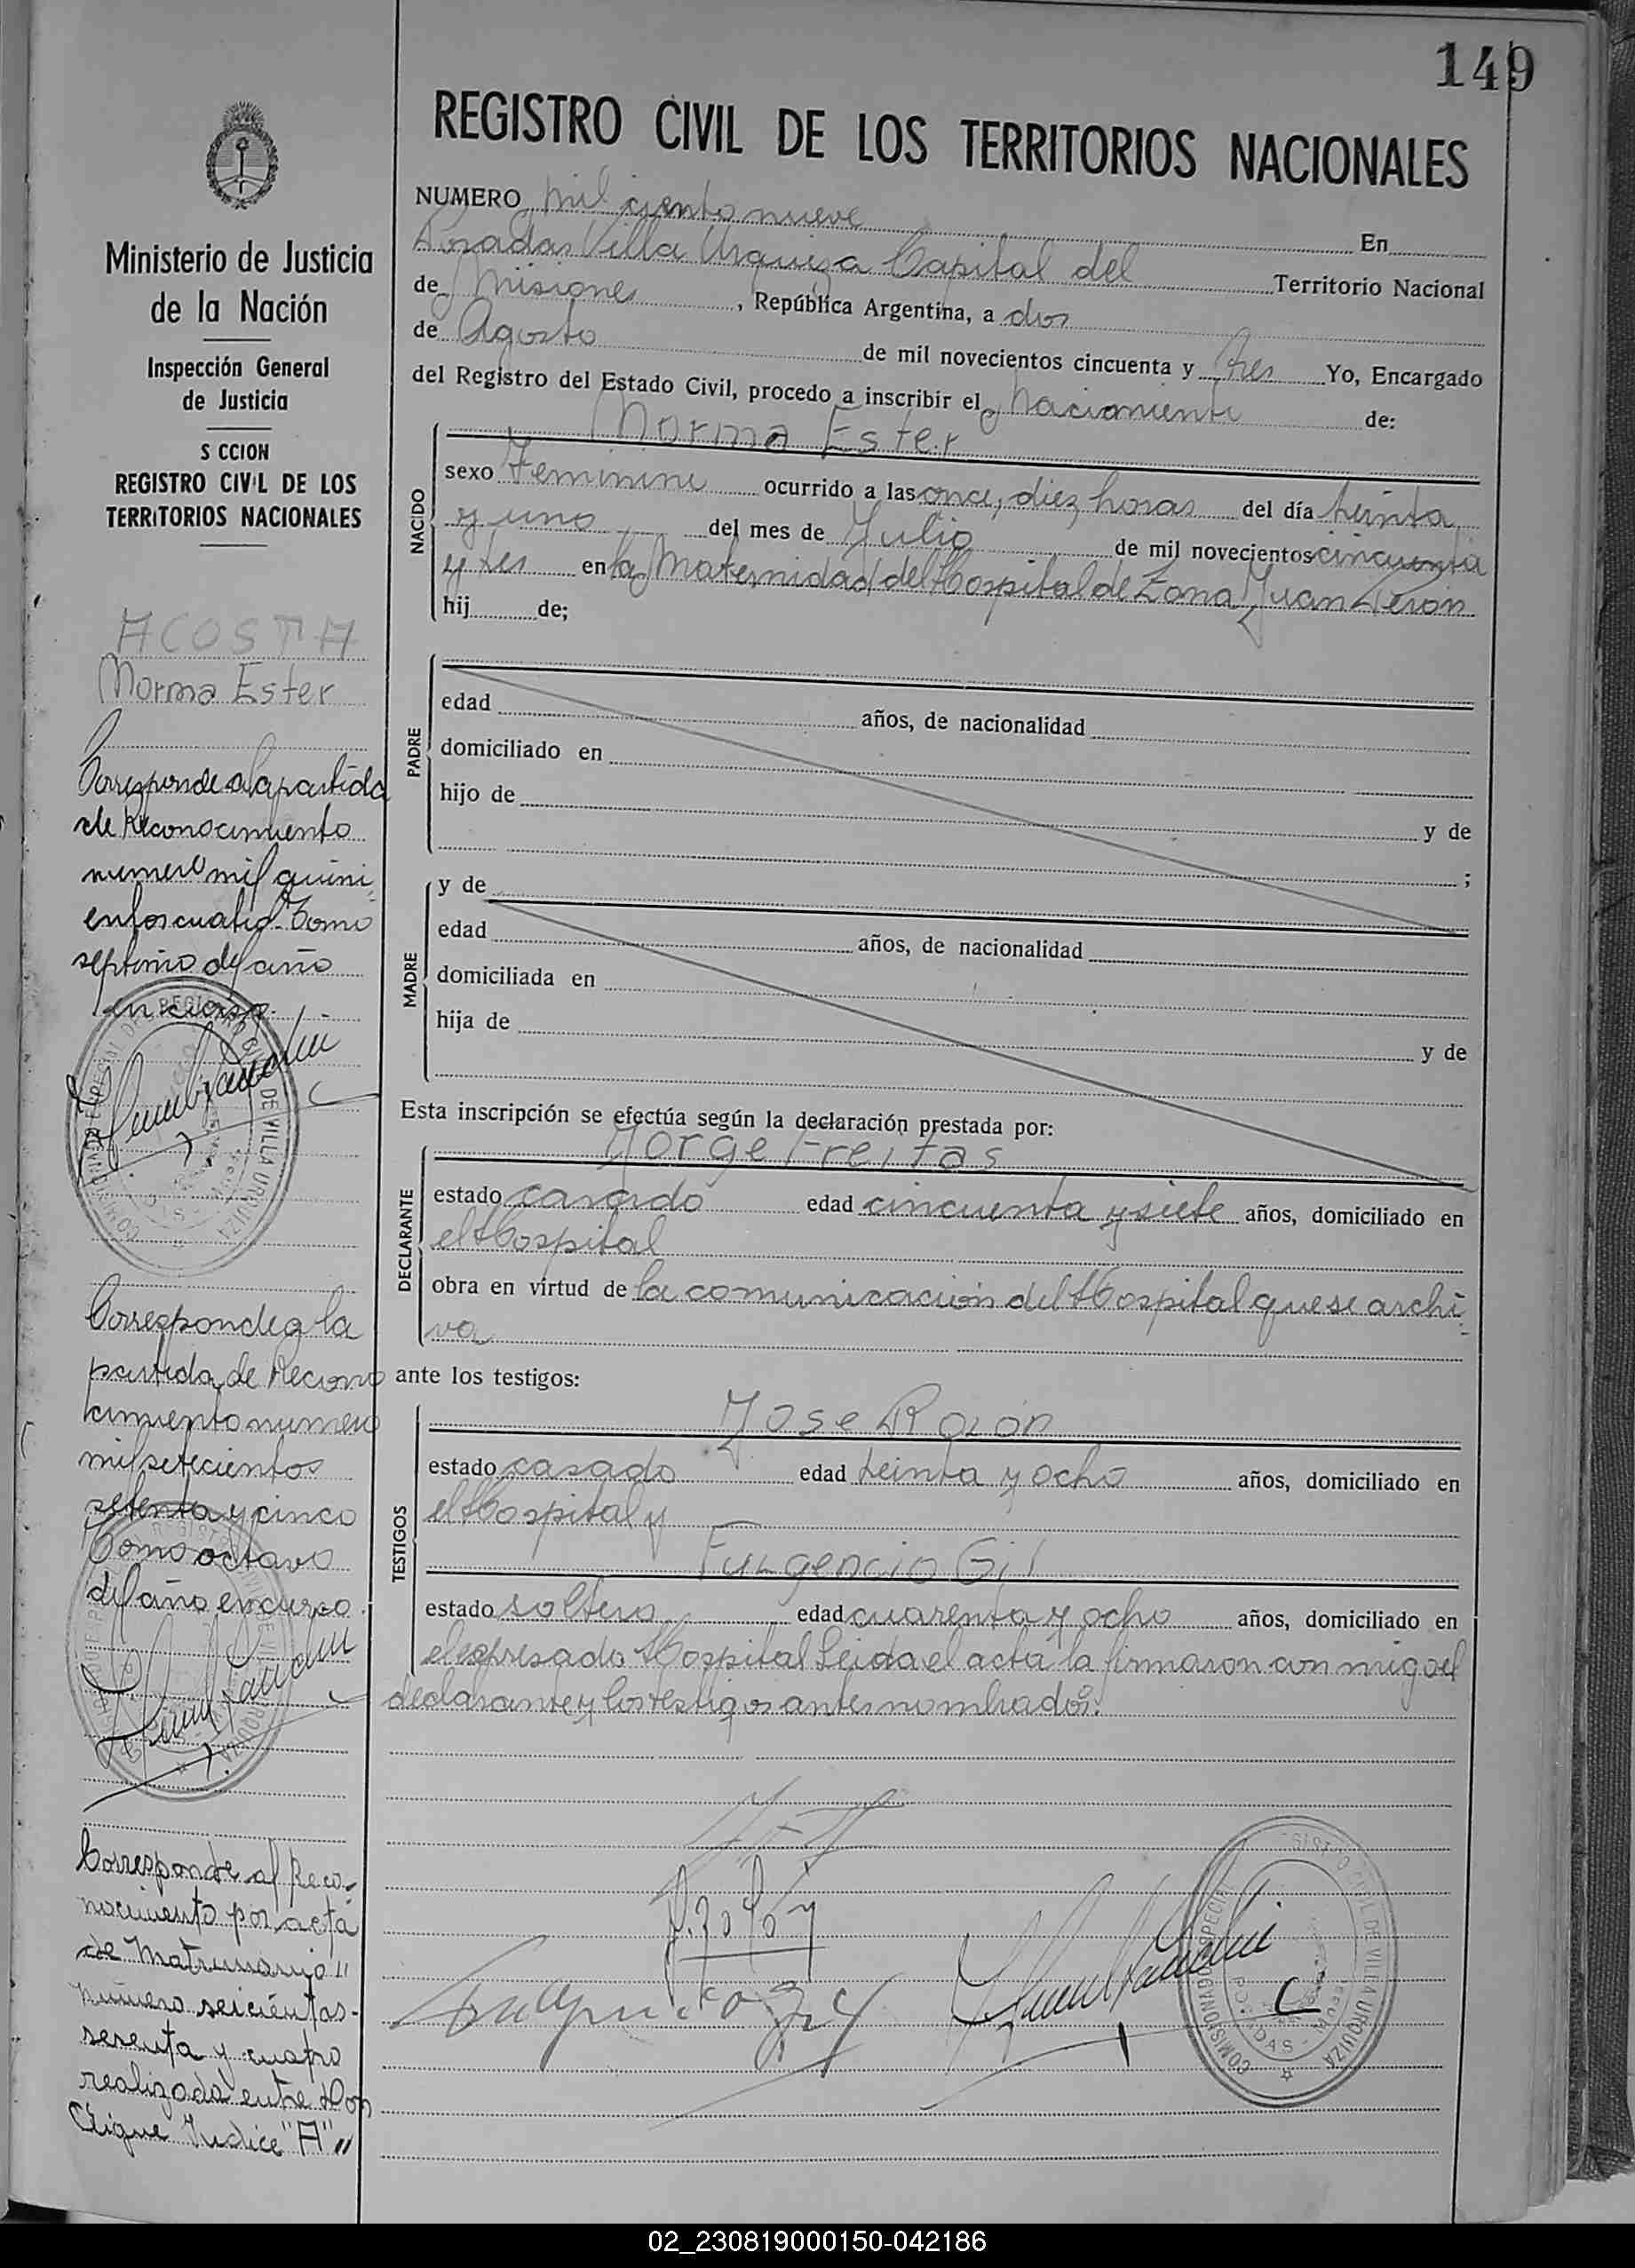 149
REGISTRO CIVIL DE LOS TERRITORIOS NACIONALES
NUMERO mil ciento nueve En
Posadas Villa Urquiza Capital del Territorio Nacional
de Misiones, República Argentina, a dos
de Agosto de mil novecientos cincuenta y tres Yo, Encargado
del Registro del Estado Civil, procedo a inscribir el nacimiento de:
Norma Ester
NACIDO
sexo Femenino ocurrido a las once, diez horas del día treinta
y uno del mes de Julio de mil novecientos cincuenta
y tres en la Maternidad del Hospital de Zona Juan Perón
hij de;
PADRE
edad años, de nacionalidad
domiciliado en
hijo de
y de
;
MADRE
y de
edad años, de nacionalidad
domiciliada en
hija de
y de
Esta inscripción se efectúa según la declaración prestada por:
Jorge Freitas
DECLARANTE
estado casado edad cincuenta y siete años, domiciliado en
el Hospital
obra en virtud de la comunicación del Hospital que se archi
va
ante los testigos:
Jose Rolón
TESTIGOS
estado casado edad treinta y ocho años, domiciliado en
el Hospital y
Fulgencio Gil
estado soltero edad cuarenta y ocho años, domiciliado en
el expresado Hospital Leida el acta la firmaron conmigo el
declarante y los testigos antes nombrados.
Ministerio de Justicia
de la Nación
Inspección General
de Justicia
S CCION
REGISTRO CIVIL DE LOS
TERRITORIOS NACIONALES
ACOSTA
Norma Ester
Corresponde a la partida
de Reconocimiento
numero mil quini
entos cuatro Tomo
septimo del año
en curso.
Corresponde a la
partida de Recono
cimiento numero
mil setecientos
setenta y cinco
Tomo octavo
del año en curso.
Corresponde al Reco-
nocimiento por acta
de Matrimonio
número seicientos-
sesenta y cuatro
realizada entre Don
Sigue Indice "A"
COMISIONADO ESPECIAL REGISTRO CIVIL DE VILLA URQUIZA
POSADAS
02_230819000150-042186